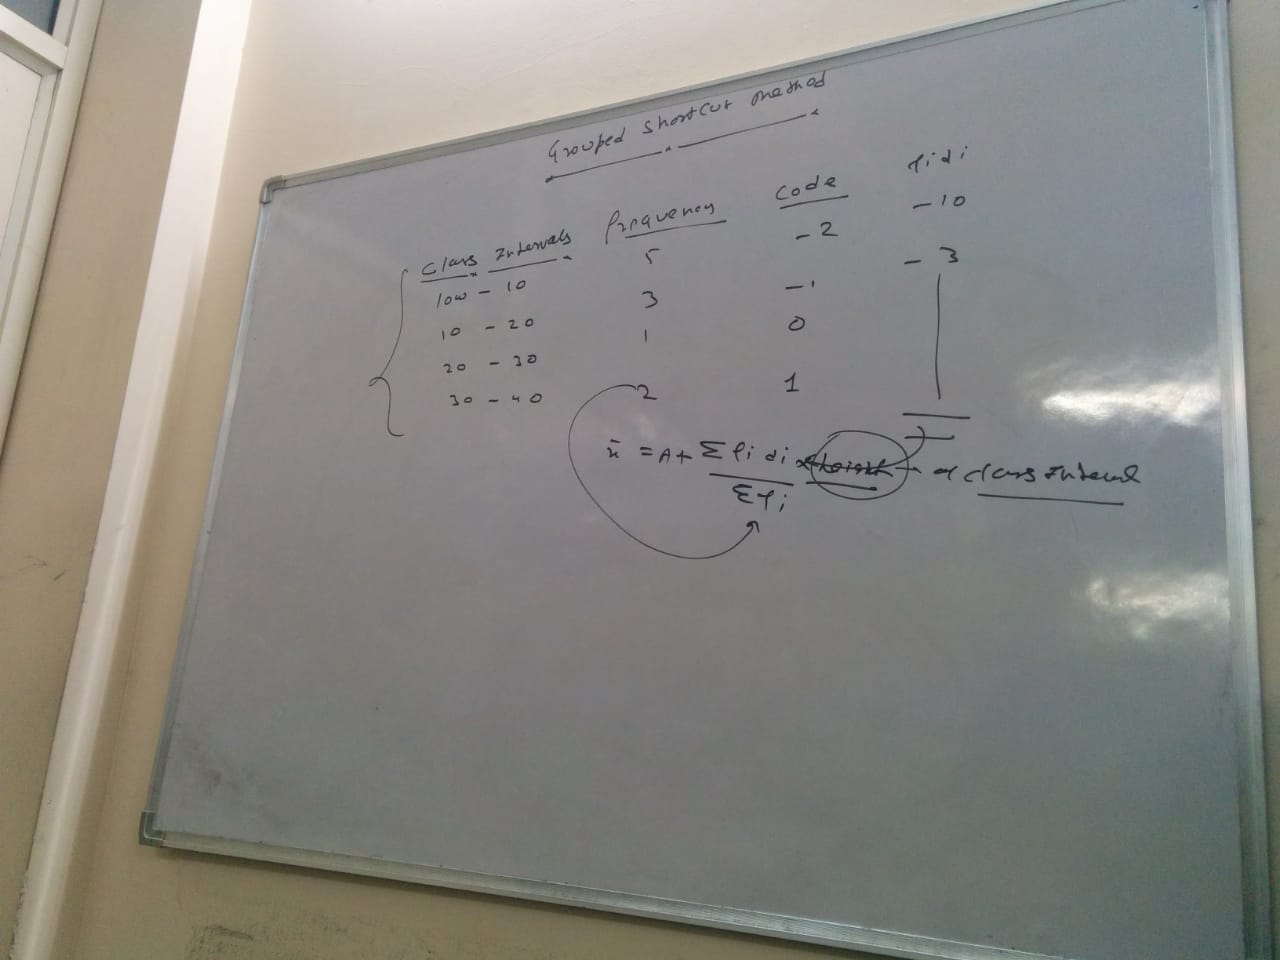 Grouped shortcut method
Class Intervals frequency code fidi
low - 10 5 -2 -10
10 - 20 3 -1 -3
20 - 30 1 0
30 - 40 2 1
x̄ = A + Σfidi × class Interval
Σfi